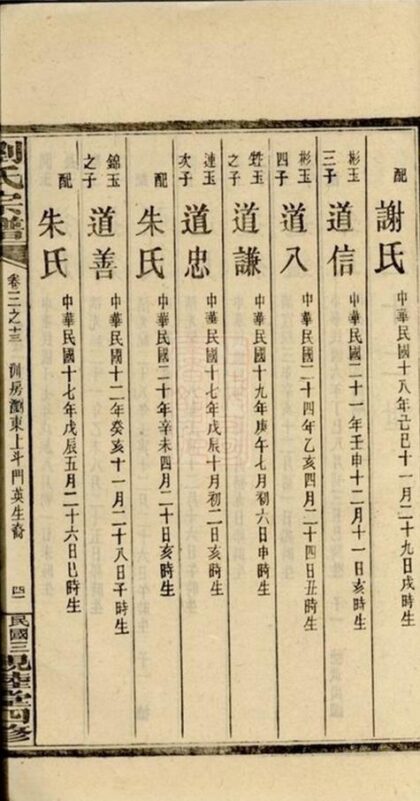 配 謝氏 中華民國十八年己巳十一月二十九日戌時生
彬玉三子 道信 中華民國二十一年壬申十二月十一日亥時生
彬玉四子 道八 中華民國二十四年乙亥四月二十四日丑時生
甡玉之子 道謙 中華民國十九年庚午七月初六日申時生
連玉次子 道忠 中華民國十七年戊辰十月初二日亥時生
配 朱氏 中華民國二十年辛未四月二十日亥時生
錦玉之子 道善 中華民國十二年癸亥十一月二十八日子時生
配 朱氏 中華民國十七年戊辰五月二十六日巳時生
劉氏宗譜 卷二之十三 渊房瀏東上斗門英生裔 四一 民國三 睦堂四修